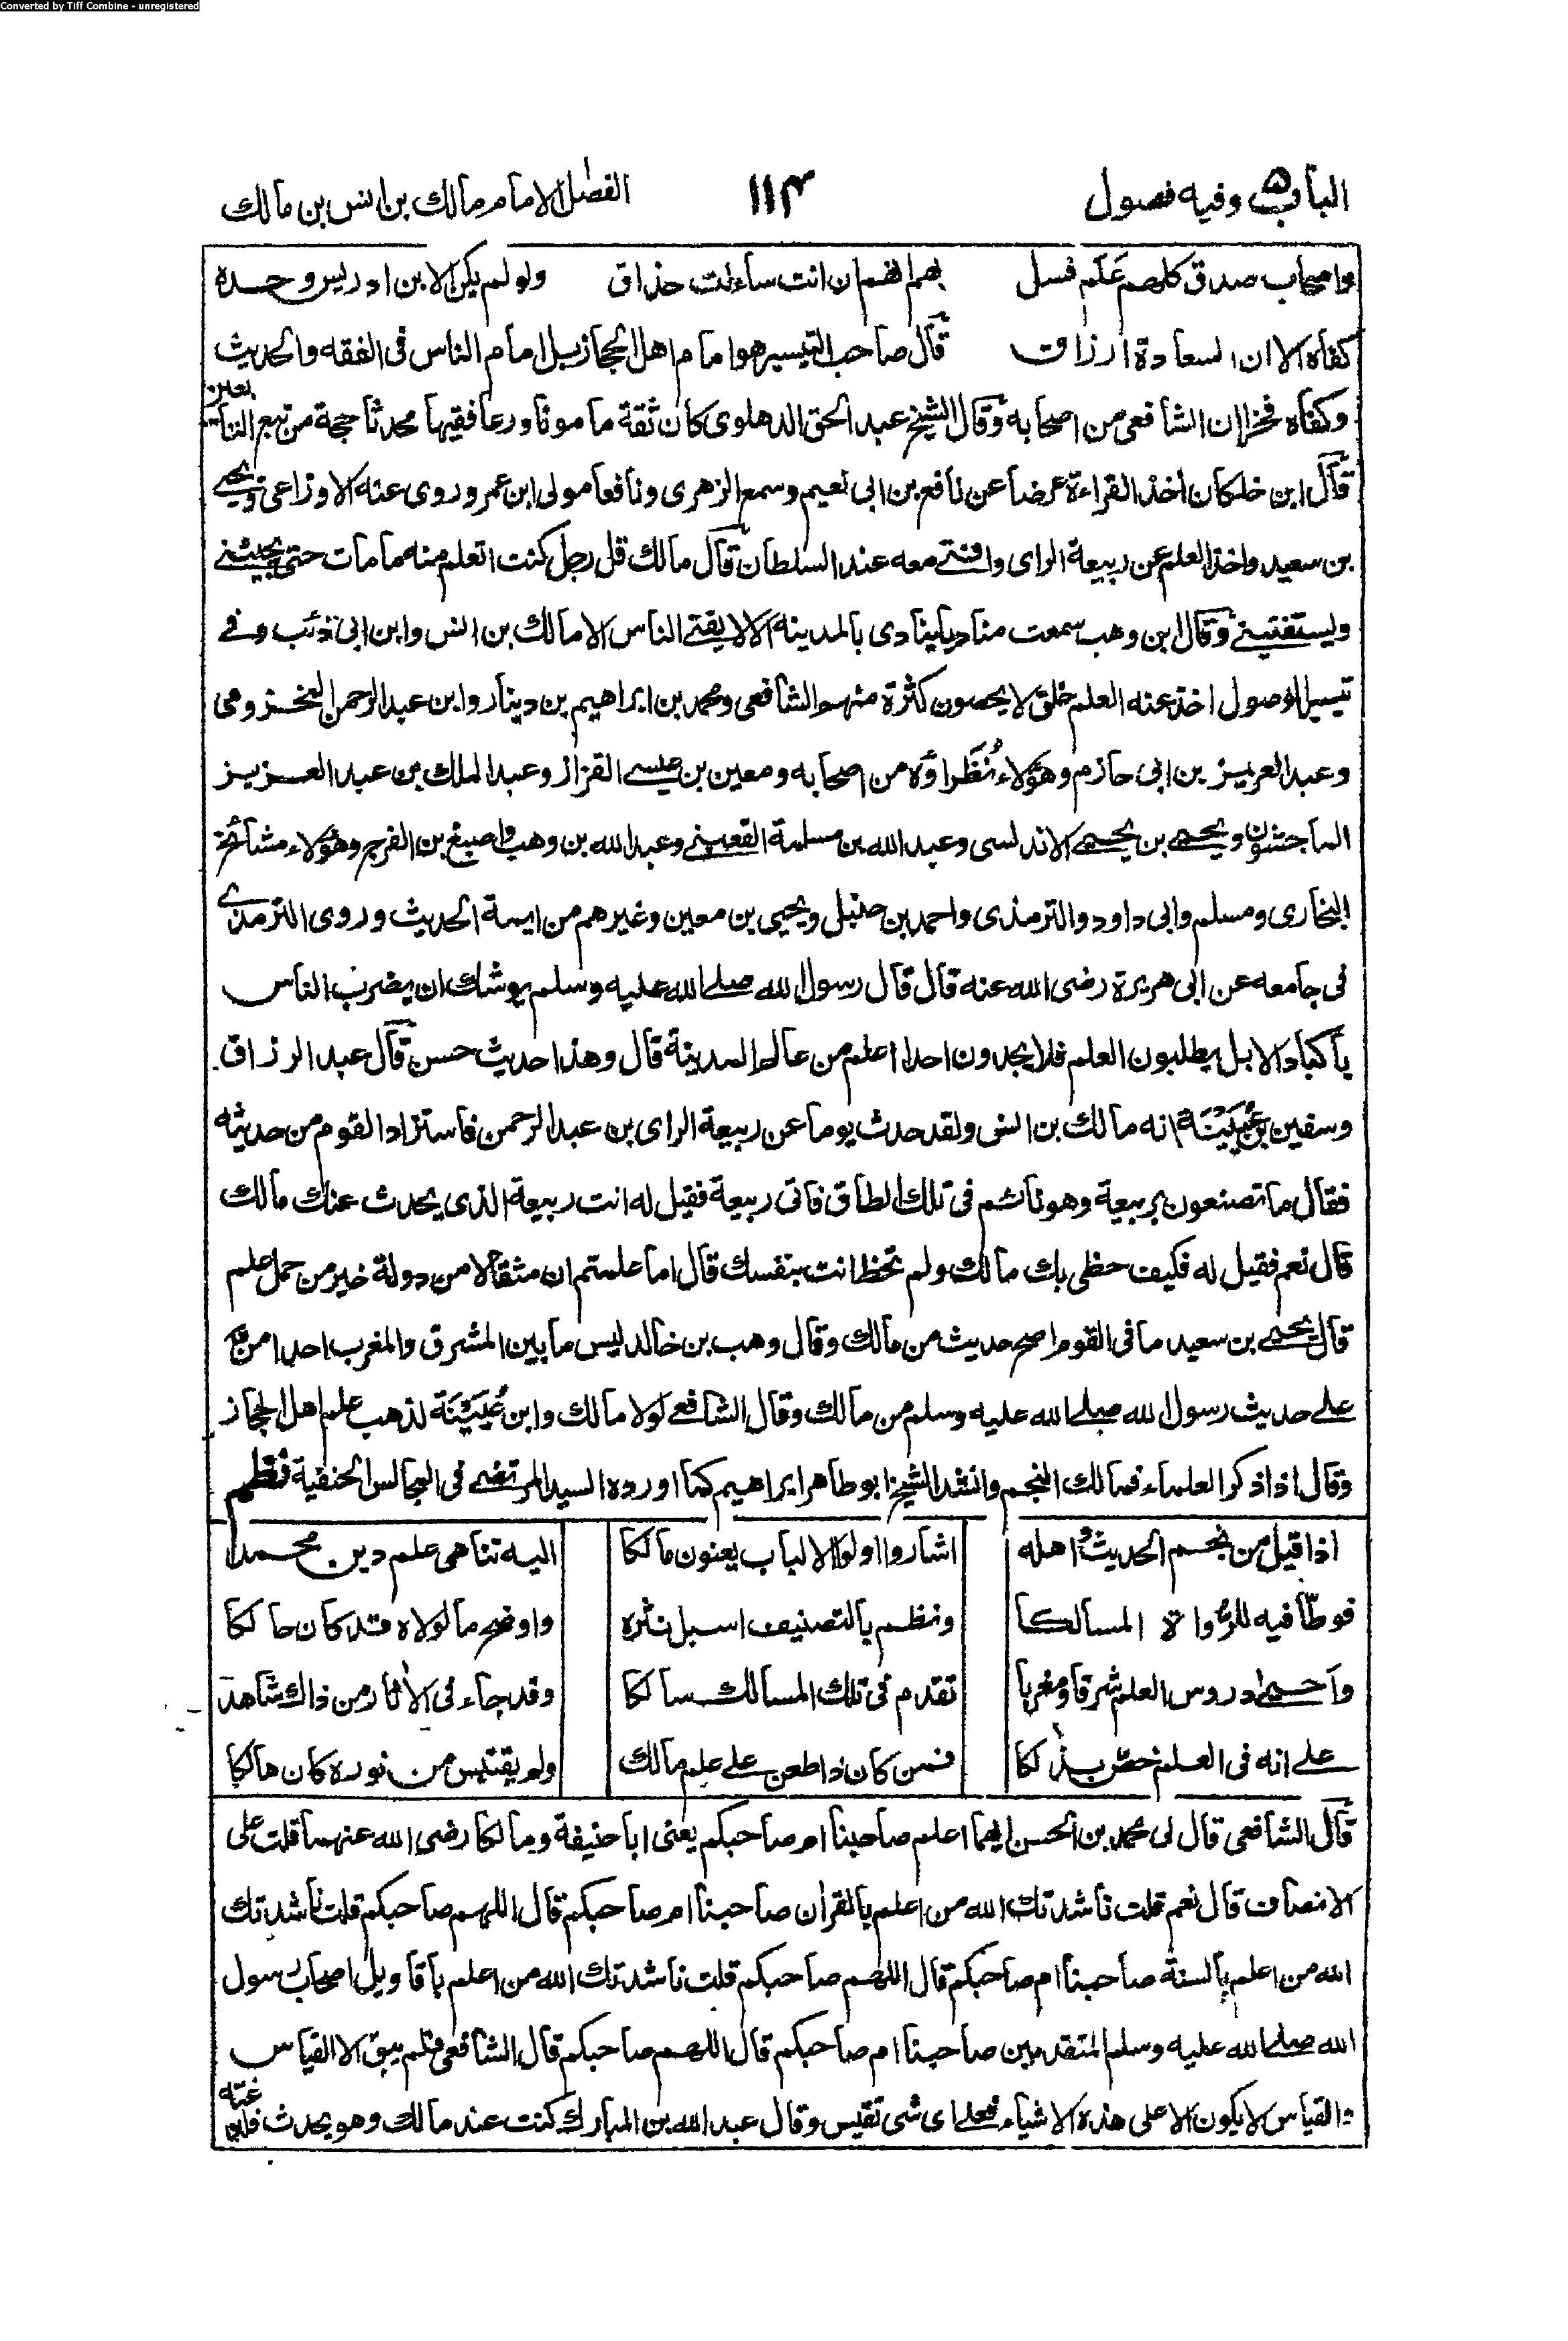 Converted by Tiff Combine - unregistered
الباب ۵ وفيه فصول
۱۱۴
الفصل الامام مالك بن انس بن مالك
واصحاب صدق كلهم علم فسل بهم انهم ان انت ساءلت حذاق ولو لم يكن الا ابن ادريس وحده
كفاه الا ان السعادة ارزاق قال صاحب التيسير هو امام اهل الحجاز بل امام الناس فى الفقه والحديث
وكفاه فخرا ان الشافعى من اصحابه وقال الشيخ عبد الحق الدهلوى كان ثقة مامونا ورعا فقيها محدثا حجة من تبع التابعين
قال ابن خلكان اخذ القراءة عرضا عن نافع بن ابى نعيم وسمع الزهرى ونافعا مولى ابن عمر وروى عنه الاوزاعى ويحيى
بن سعيد واخذ العلم عن ربيعة الراى وافتى معه عند السلطان قال مالك قل رجل كنت اتعلم منه ما مات حتى يجيئنى
ويستفتينى وقال ابن وهب سمعت مناديا ينادى بالمدينه الا لا يفتى الناس الا مالك بن انس وابن ابى ذئب وفى
تيسير الوصول اخذ عنه العلم خلق لا يحصون كثرة منهم الشافعى ومحمد بن ابراهيم بن دينار وابن عبد الرحمن المخزومى
وعبد العزيز بن ابى حازم وهؤلاء نُظَراؤه من اصحابه ومعين بن عيسى القزاز وعبد الملك بن عبد العزيز
الماجشون ويحيى بن يحيى الاندلسى وعبد الله بن مسلمة القعبنى وعبد الله بن وهب واصبغ بن الفرج وهؤلاء مشائخ
البخارى ومسلم وابى داود والترمذى واحمد بن حنبل ويحيى بن معين وغيرهم من ايمة الحديث وروى الترمذى
فى جامعه عن ابى هريرة رضى الله عنه قال قال رسول الله صلى الله عليه وسلم يوشك ان يضرب الناس
باكباد الابل يطلبون العلم فلا يجدون احدا اعلم من عالم المدينة قال وهذا حديث حسن قال عبد الرزاق
وسفين بن عُيَيْنَة انه مالك بن انس ولقد حدث يوما عن ربيعة الراى بن عبد الرحمن فاستزاد القوم من حديثه
فقال ما تصنعون بربيعة وهو نائم فى تلك الطاق فاتى ربيعة فقيل له انت ربيعة الذى يحدث عنك مالك
قال نعم فقيل له فكيف حظى بك مالك ولم تحظ انت بنفسك قال اما علمتم ان مثقالا من دولة خير من حمل علم
قال يحيى بن سعيد ما فى القوم اصح حديث من مالك وقال وهب بن خالد ليس ما بين المشرق والمغرب احدا من
على حديث رسول الله صلى الله عليه وسلم من مالك وقال الشافعى لولا مالك وابن عُيَيْنَة لذهب علم اهل الحجاز
وقال اذا ذكر العلماء فمالك النجم وانشد الشيخ ابو طاهر ابراهيم كما اورده السيد المرتضى فى المجالس الحنفية نظم
اذا قيل من نجم الحديث واهله اشاروا اولو الالباب يعنون مالكا اليه تناهى علم دين محمد
فوطّا فيه للرُّواة المسالكا ونظم بالتصنيف اسبل نثره واوضح ما لولاه قد كان حالكا
واحيى دروس العلم شرقا ومغربا تقدم فى تلك المسالك سالكا وقد جاء فى الاثار من ذاك شاهد
على انه فى العلم خصّ بذلكا فمن كان ذا طعن على علم مالك ولم يقتبس من نوره كان هالكا
قال الشافعى قال لى محمد بن الحسن ايهما اعلم صاحبنا ام صاحبكم يعنى ابا حنيفة ومالكا رضى الله عنهما قلت على
الانصاف قال نعم قلت ناشدتك الله من اعلم بالقران صاحبنا ام صاحبكم قال اللهم صاحبكم قلت ناشدتك
الله من اعلم بالسنة صاحبنا ام صاحبكم قال اللهم صاحبكم قلت ناشدتك الله من اعلم باقاويل اصحاب رسول
الله صلى الله عليه وسلم المتقدمين صاحبنا ام صاحبكم قال اللهم صاحبكم قال الشافعى فلم يبق الا القياس
والقياس لا يكون الا على هذه الاشياء فعلى اى شى تقيس وقال عبد الله بن المبارك كنت عند مالك وهو يحدث